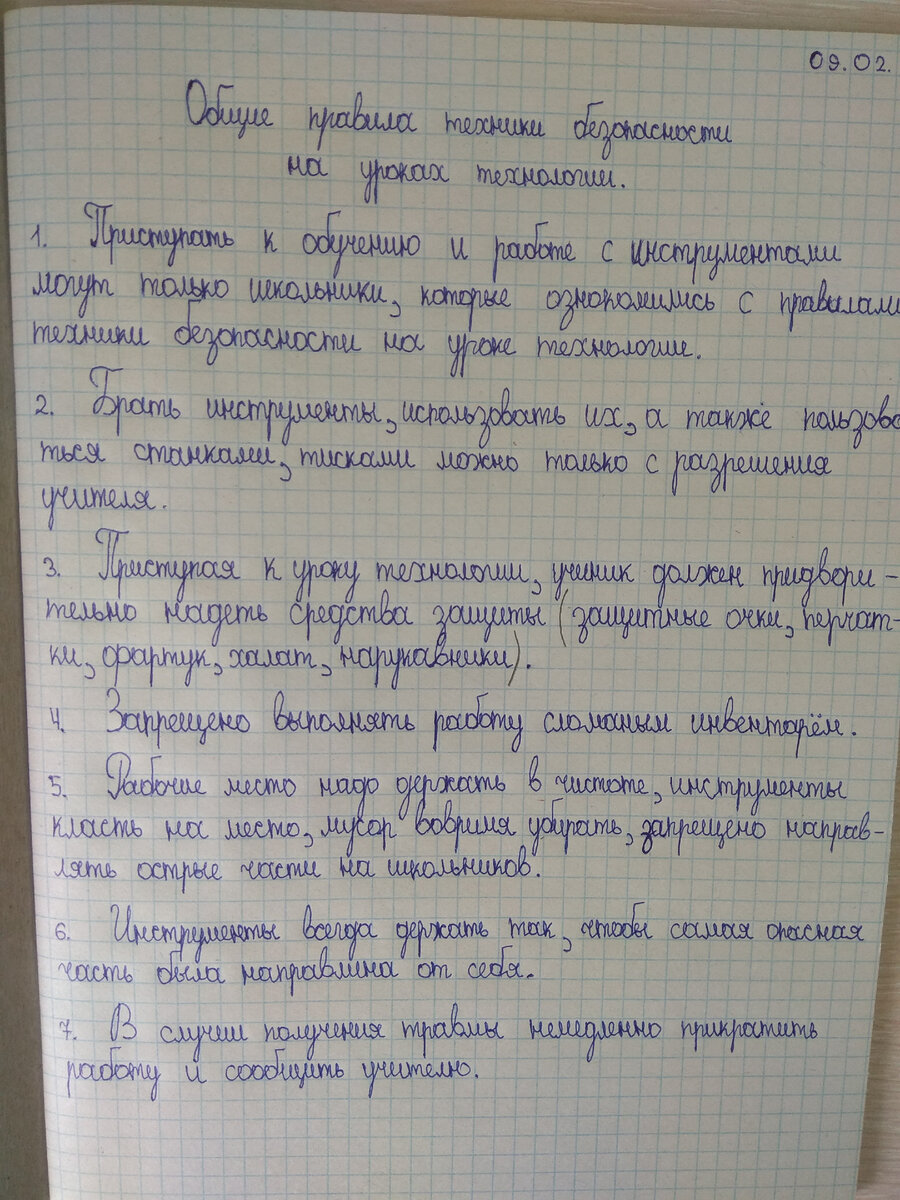 09.02.
Общие правила техники безопасности
на уроках технологии.
1. Приступать к обучению и работе с инструментами
могут только школьники, которые ознокомились с правилами
техники безопасности на уроке технологии.
2. Брать инструменты, использовать их, а также пользова
ться станками, тисками можно только с разрешения
учителя.
3. Приступая к уроку технологии, ученик должен придвори-
тельно надеть средства защиты (защитные очки, перчат-
ки, фартук, халат, нарукавники).
4. Запрещено выполнять работу сломаным инвентарём.
5. Рабочие место надо держать в чистоте, инструменты
класть на место, мусор вовримя убирать, запрещено направ-
лять острые части на школьников.
6. Инструменты всегда держать так, чтобы самая опасная
часть была направлина от себя.
7. В случии получения травмы немедленно прикратить
работу и сообщить учителю.